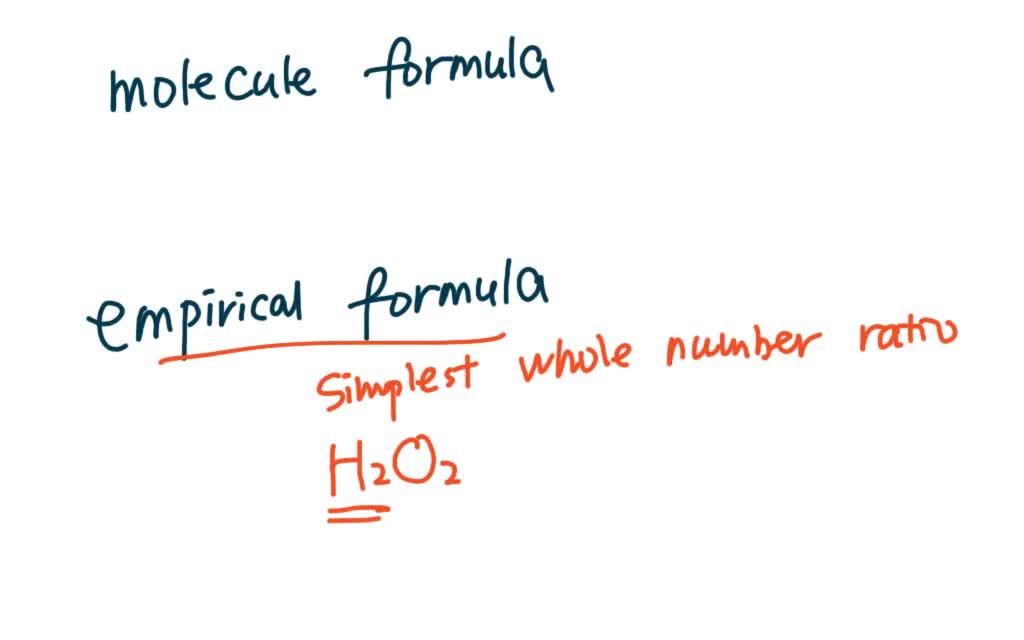 molecule formula
empirical formula
simplest whole number ratio
H₂O₂